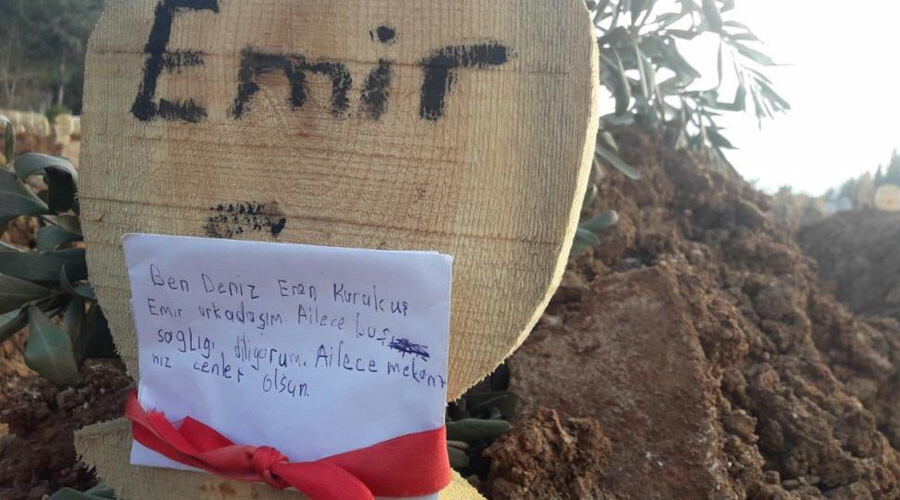 Emir
Ben Deniz Eren Kurukuş
Emir arkadaşım Ailece baş
sağlığı diliyorum. Ailece mekanı
nız cenket olsun.